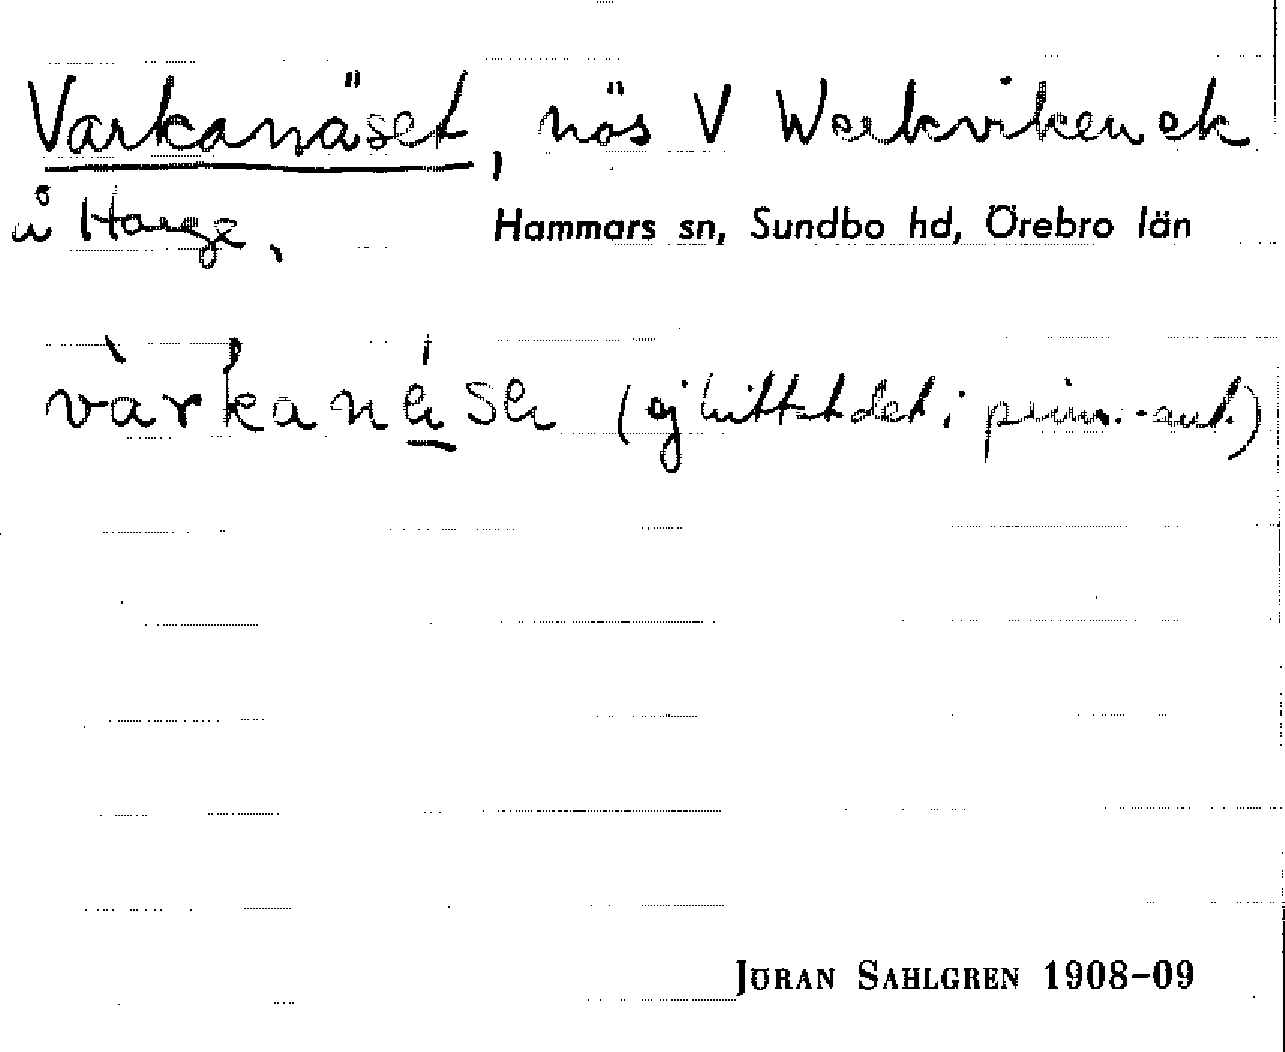 Varkanäset, näs V Werkviken ek
å Harge,
Hammars sn, Sundbo hd, Örebro län
vàrkanásu (ej hittat det i prim.-ant.)
JÖRAN SAHLGREN 1908–09